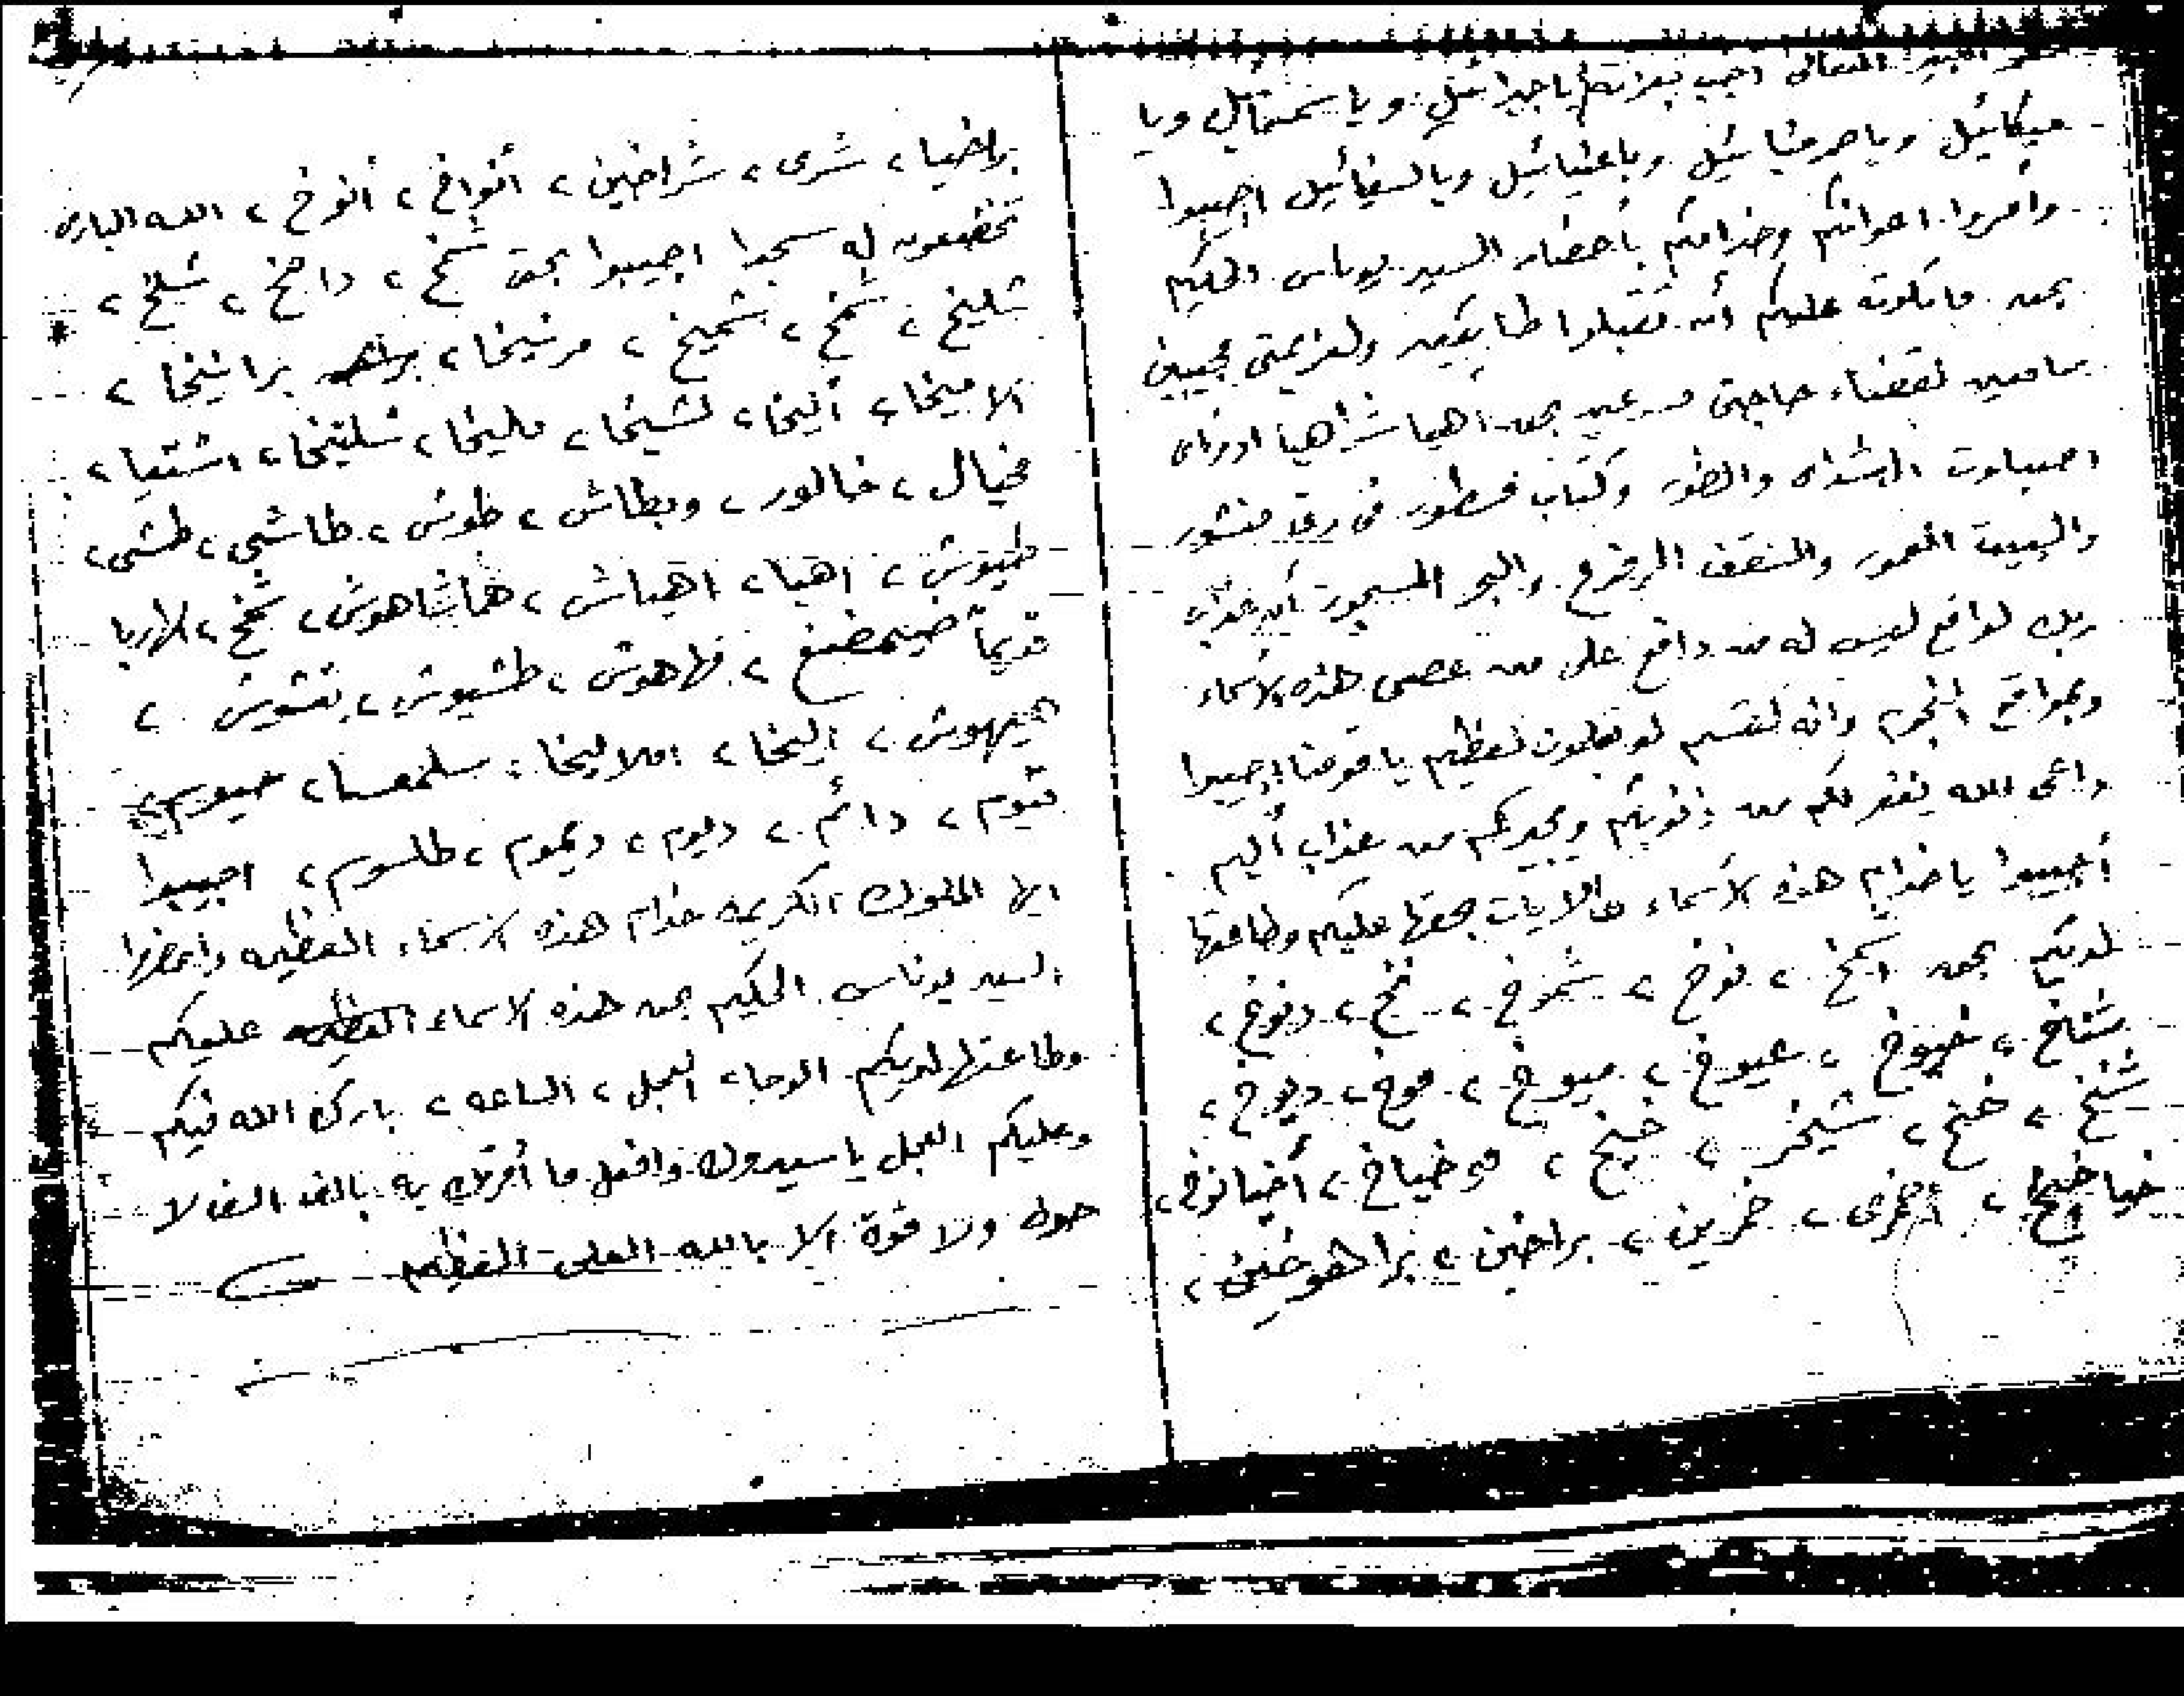 الكبير المتعال اجب يا جبرائيل ويا سمسمائيل ويا
ميكائيل ويا صرفيائيل ويا عنيائيل ويا كسفيائيل اجيبوا
وأمروا اعوانكم وخدامكم بأحضار السيد يوناس الحكيم
بحق ما تلوته عليكم أن تقبلوا طايعين ولعزيمتى مجيبين
سامعين لقضاء حاجتى مسرعين بحق أهيا شراهيا ادوناى
اصباوت الشداى والطور وكتاب مسطور فى رق منشور
والبيت المعمور والسقف المرفوع والبحر المسجور أن عذاب
ربك لواقع ليس له من دافع على من عصى هذه الاسماء
وبمواقع النجوم وانه لقسم لو تعلمون لعظيم يا قومنا اجيبوا
داعى الله يغفر لكم من ذنوبكم ويجيركم من عذاب أليم
أجيبوا يا خدام هذه الاسماء والايات بحقها عليكم وطاعتها
لديكم بحق اشمخ ، نوخ ، شموخ ، نخ ، دنوخ ،
شناخ ، خيوخ ، عيوخ ، ميوخ ، موخ ، ديوخ ،
شنخ ، خنخ ، شيخر ، خينخ ، موخياخ ، أخيانوخ ،
خياخيخا ، احمرى ، خمرين ، براخين ، براهوخين ،
براخيا ، شرى ، شراخين ، أنواخ ، أنوخ ، الله البارى
تخضعون له سجدا اجيبوا بحق شمخ ، دامخ ، شلخ ،
شليخ ، شمخ ، شميخ ، مرنيخا ، برانيخا ،
الاميخا ، أليخا ، لشيخا ، مليخا ، شلنيخا ، اشتعيا ،
مخيال ، خالور ، وبطاش ، طوش ، طاشى ، طشى ،
طيوش ، اهيا ، اهياش ، هماشاهوش ، شمخ ، لاربا
قديماً ، فهاهوش ، طشيوش ، نقشوش ،
اليخا ، املاليخا ،
قيوم ، دائم ، ديوم ، ديموم ، طلسوم ، اجيبوا
ايها الملوك الكريمه خدام هذه الاسماء العظيمه واحضروا
السيد يوناس الحكيم بحق هذه الاسماء العظيمه عليكم
وطاعتها لديكم الوحا ، العجل ، الساعه ، بارك الله فيكم
وعليكم العجل يا سيدوك وافعل ما أمرتك به بالف الف لا
حول ولا قوة الا بالله العلى العظيم